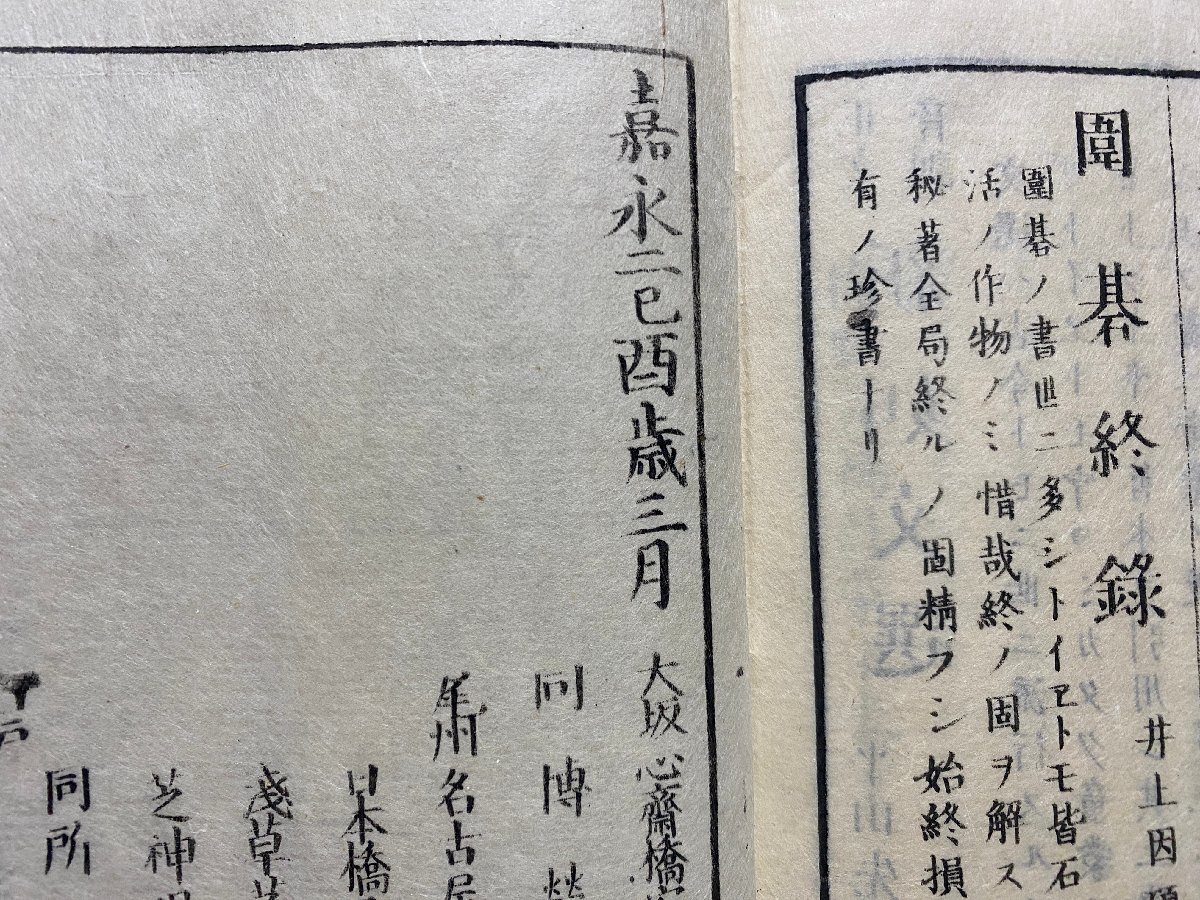 圍碁終錄
井上因碩
圍碁ノ書世ニ多シトイヱトモ皆石
活ノ作物ノミ惜哉終ノ固ヲ解ス
秘著全局終ルノ固精フシ始終損
有ノ珍書ナリ
嘉永二己酉歳三月
大坂心齋橋
同博勞
尾州名古屋
日本橋
淺草茅
芝神明
同所